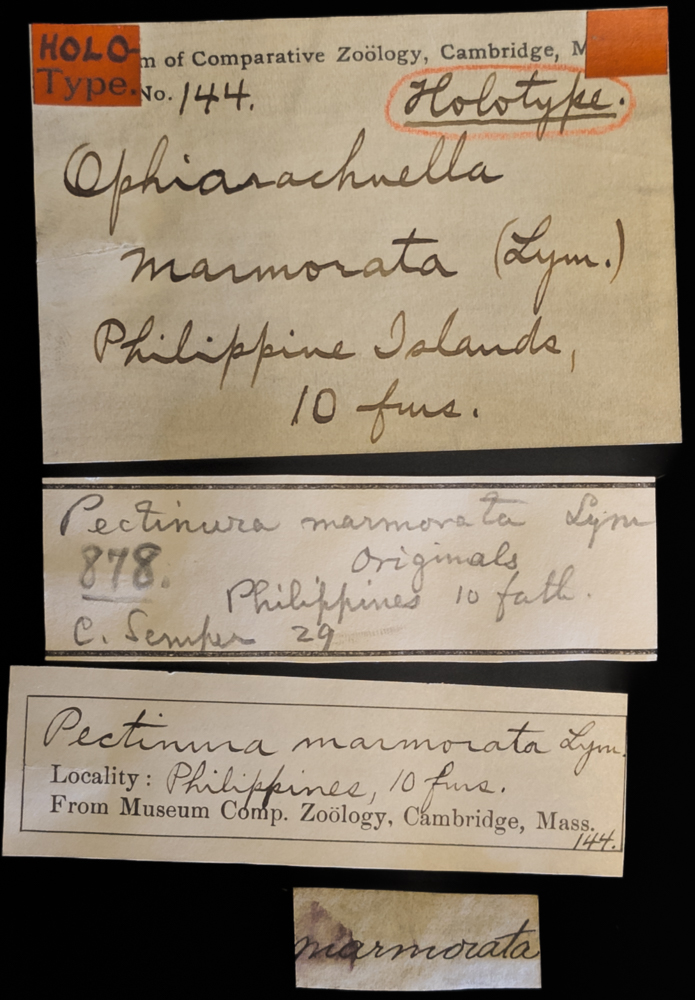 HOLO-
Type.
m of Comparative Zoölogy, Cambridge, M
No. 144.
Holotype.
Ophiarachnella
marmorata (Lym.)
Philippine Islands,
10 fms.
Pectinura marmorata Lym
878.
Originals
Philippines 10 fath.
C. Semper 29
Pectinura marmorata Lym.
Locality: Philippines, 10 fms.
From Museum Comp. Zoölogy, Cambridge, Mass.
144.
marmorata